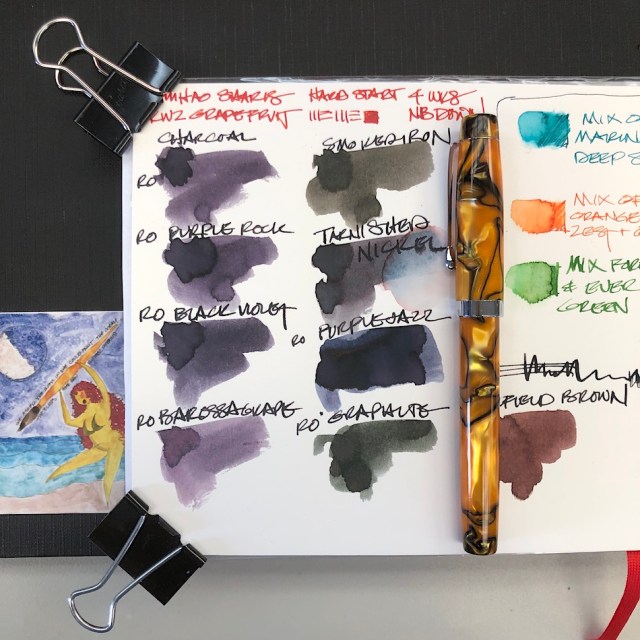 HARD START 4 WKS
KWZ GRAPEFRUIT
NB DOWN
CHARCOAL
SMOKED IRON
RO
RO PURPLE ROCK
TARNISHED
NICKEL
RO BLACK VIOLET
RO PURPLE JAZZ
RO BAROSSA GRAPE
RO GRAPHITE
MIX O
MARIN
DEEP S
MIX OF
ORANGE
MIX FOR
& EVER
GREEN
FIELD BROWN